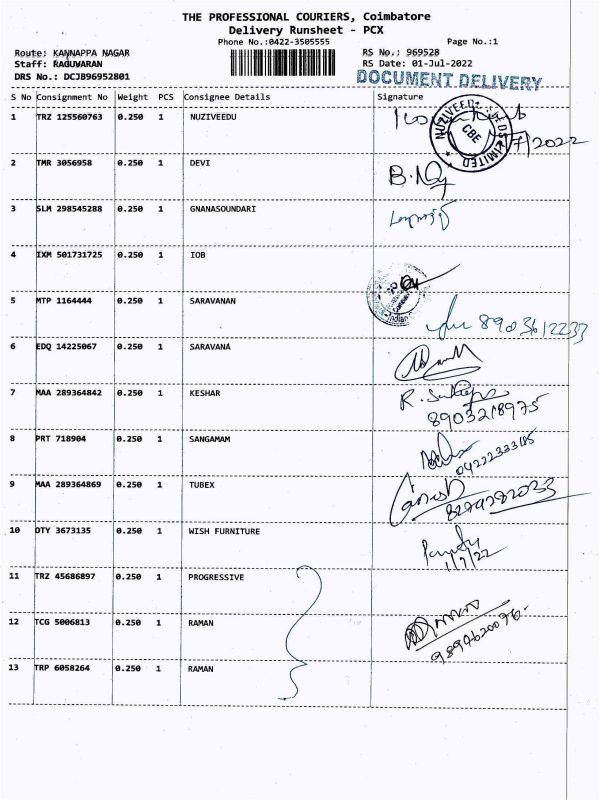 THE PROFESSIONAL COURIERS, Coimbatore
Delivery Runsheet - PCX
Phone No.:0422-3505555 Page No.:1
Route: KANNAPPA NAGAR RS No.: 969528
Staff: RAGUWARAN RS Date: 01-Jul-2022
DRS No.: DCJB96952801 DOCUMENT DELIVERY
S No Consignment No Weight PCS Consignee Details Signature
1 TRZ 125560763 0.250 1 NUZIVEEDU
NUZIVEEDU SEEDS LIMITED CBE
/7/2022
2 TMR 3056958 0.250 1 DEVI
3 SLM 298545288 0.250 1 GNANASOUNDARI
4 IXM 501731725 0.250 1 IOB
5 MTP 1164444 0.250 1 SARAVANAN
8903612233
6 EDQ 14225067 0.250 1 SARAVANA
7 MAA 289364842 0.250 1 KESHAR
8903218975
8 PRT 718904 0.250 1 SANGAMAM
9 MAA 289364869 0.250 1 TUBEX
Ganesh
10 OTY 3673135 0.250 1 WISH FURNITURE
1/7/22
11 TRZ 45686897 0.250 1 PROGRESSIVE
12 TCG 5006813 0.250 1 RAMAN
13 TRP 6058264 0.250 1 RAMAN